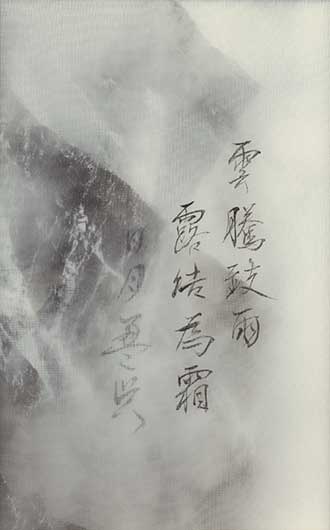 雲騰致雨
露結為霜
日月